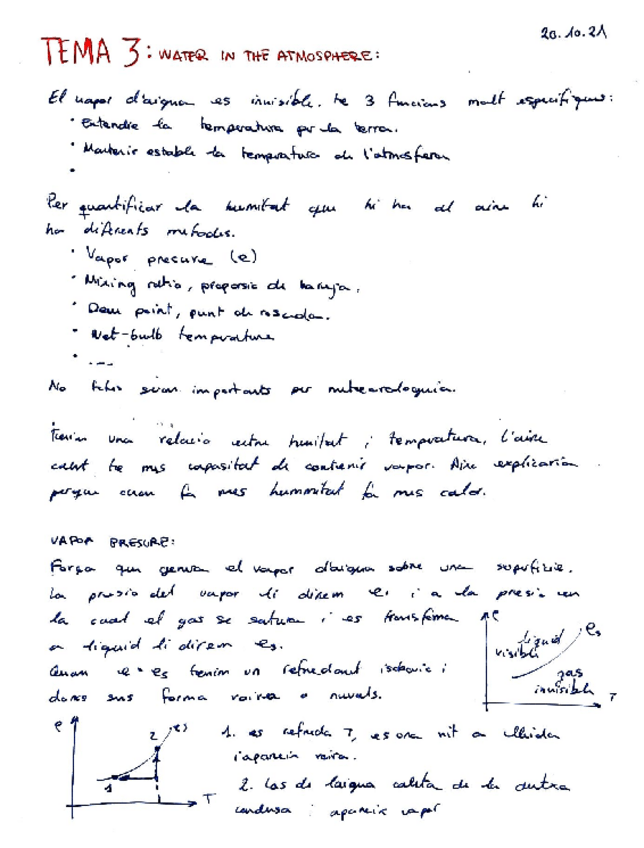 20.10.21
TEMA 3: WATER IN THE ATMOSPHERE:
El vapor d'aigua es invisible. te 3 funcions molt especifiques:
· Entendre la temperatura per la terra.
· Mantenir estable la temperatura de l'atmosfera
·
Per quantificar la humitat que hi ha al aire hi
ha diferents metodes.
· Vapor presure (e)
· Mixing ratio, proporsio de barreja.
· Dew point, punt de rosada.
· Wet-bulb temperature
· ----
No totes son importants per meteorologuia.
Tenim una relacio entre humitat i temperatura, l'aire
calent te mes capasitat de contenir vapor. Aixo explicaria
perque quan fa mes hummitat fa mes calor.
VAPOR PRESURE:
Força que genera el vapor d'aigua sobre una superficie.
La presio del vapor li direm e, i a la presio en
la cual el gas se satura i es transforma
a liquid li direm es.
Quan e = es tenim un refredament isobaric i
doncs sens forma roira o nuvols.
e
es
liquid
visible
gas
invisible
T
e
es
2
1
T
1. es refreda T, es una nit a Lleida
i apareix roira.
2. Las de l'aigua calenta de la dutxa
condensa i apareix vapor